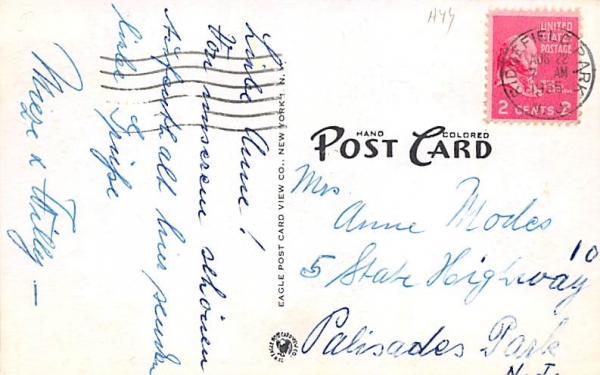 H44
Liebe Anne!
Von unserem schönen
Aufenthalt hier senden
liebe Grüße
Mieze & Willy —
EAGLE POST CARD VIEW CO., NEW YORK 1, N.
HAND COLORED
POST CARD
UNITED STATES POSTAGE
2 CENTS 2
RIDGEFIELD PARK
AUG 22
AM
Mrs.
Anne Modes
10
5 State Highway
Palisades Park